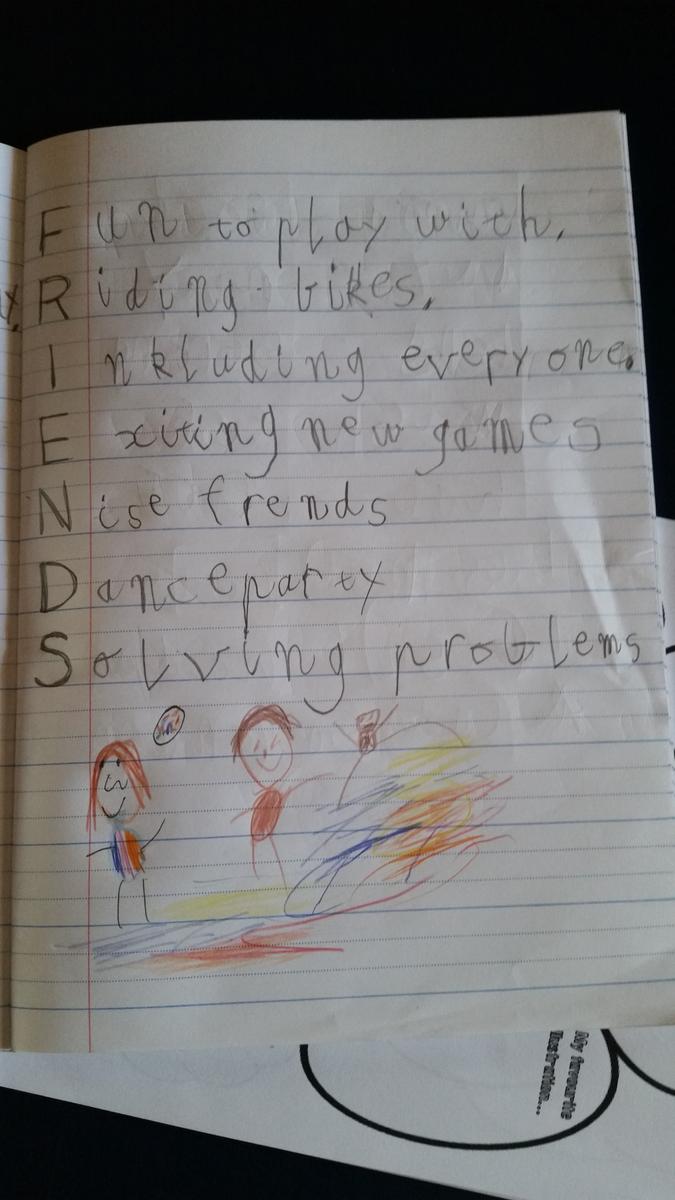 Fun to play with.
Riding bikes.
Inkluding everyone.
Exiting new games
Nise frends
Dance party
Solving problems
My favourite
illustration...